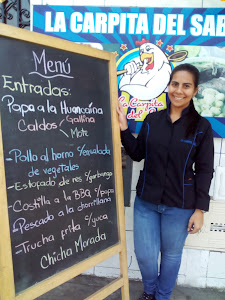 LA CARPITA DEL SAB
La Carpita
del
Menú
Entradas:
Papa a la Huancaína
Caldos Gallina
Mote
-Pollo al horno c/ensalada
de vegetales
-Estofado de res c/garbanzo
-Costilla a la BBQ s/papa
-Pescado a la chorrillana
-Trucha frita c/yuca
Chicha Morada